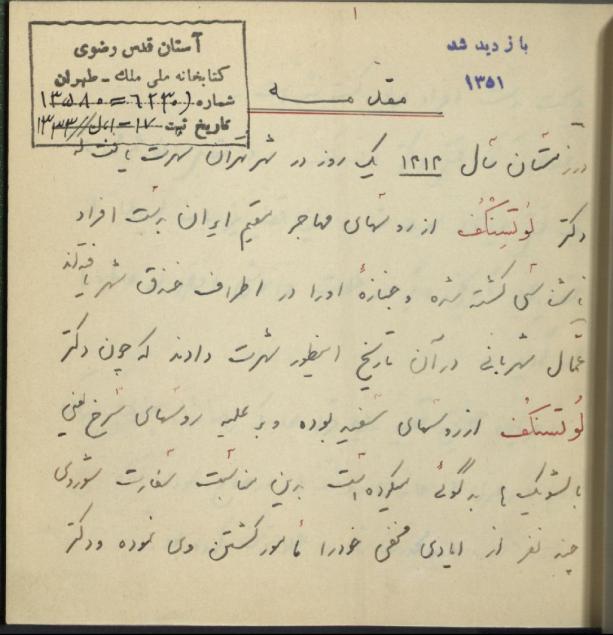 آستان قدس رضوی
کتابخانه ملی ملک - طهران
شماره
تاریخ ثبت
بازدید شد
۱۳۵۱
مقدمه
در زمستان سال ۱۳۱۲ یک روز در شهر تهران شهرت یافت که
دکتر لوتسنکف از روسهای مهاجر مقیم ایران بدست افراد
ناشناسی کشته شده و جنازهٔ اورا در اطراف خندق شهر یافته‌اند
عمال شهربانی در آن تاریخ اینطور شهرت دادند که چون دکتر
لوتسنکف از روسهای سفید بوده و بر علیه روسهای سرخ یعنی
بالشویک ها بدگوئی میکرده است بدین مناسبت سفارت شوروی
چند نفر از ایادی مخفی خودرا مامور کشتن وی نموده و دکتر